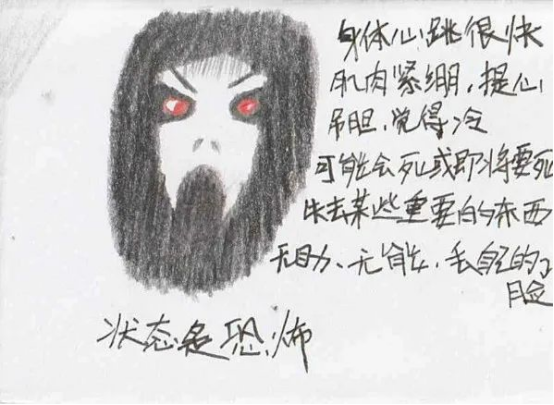 身体心跳很快
肌肉紧绷，提心
吊胆，觉得冷
可能会死或即将要死
失去某些重要的东西
无助、无能，丢自己的了
脸
状态是恐怖